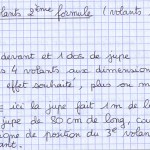 lants 2ème formule (volants
devant et 1 dos de jupe
s 4 volants aux dimension
effet souhaité, plus ou m
ici la jupe fait 1m de l
jupe de 80 cm de long, cou
igne de position du 3e volan
ant.